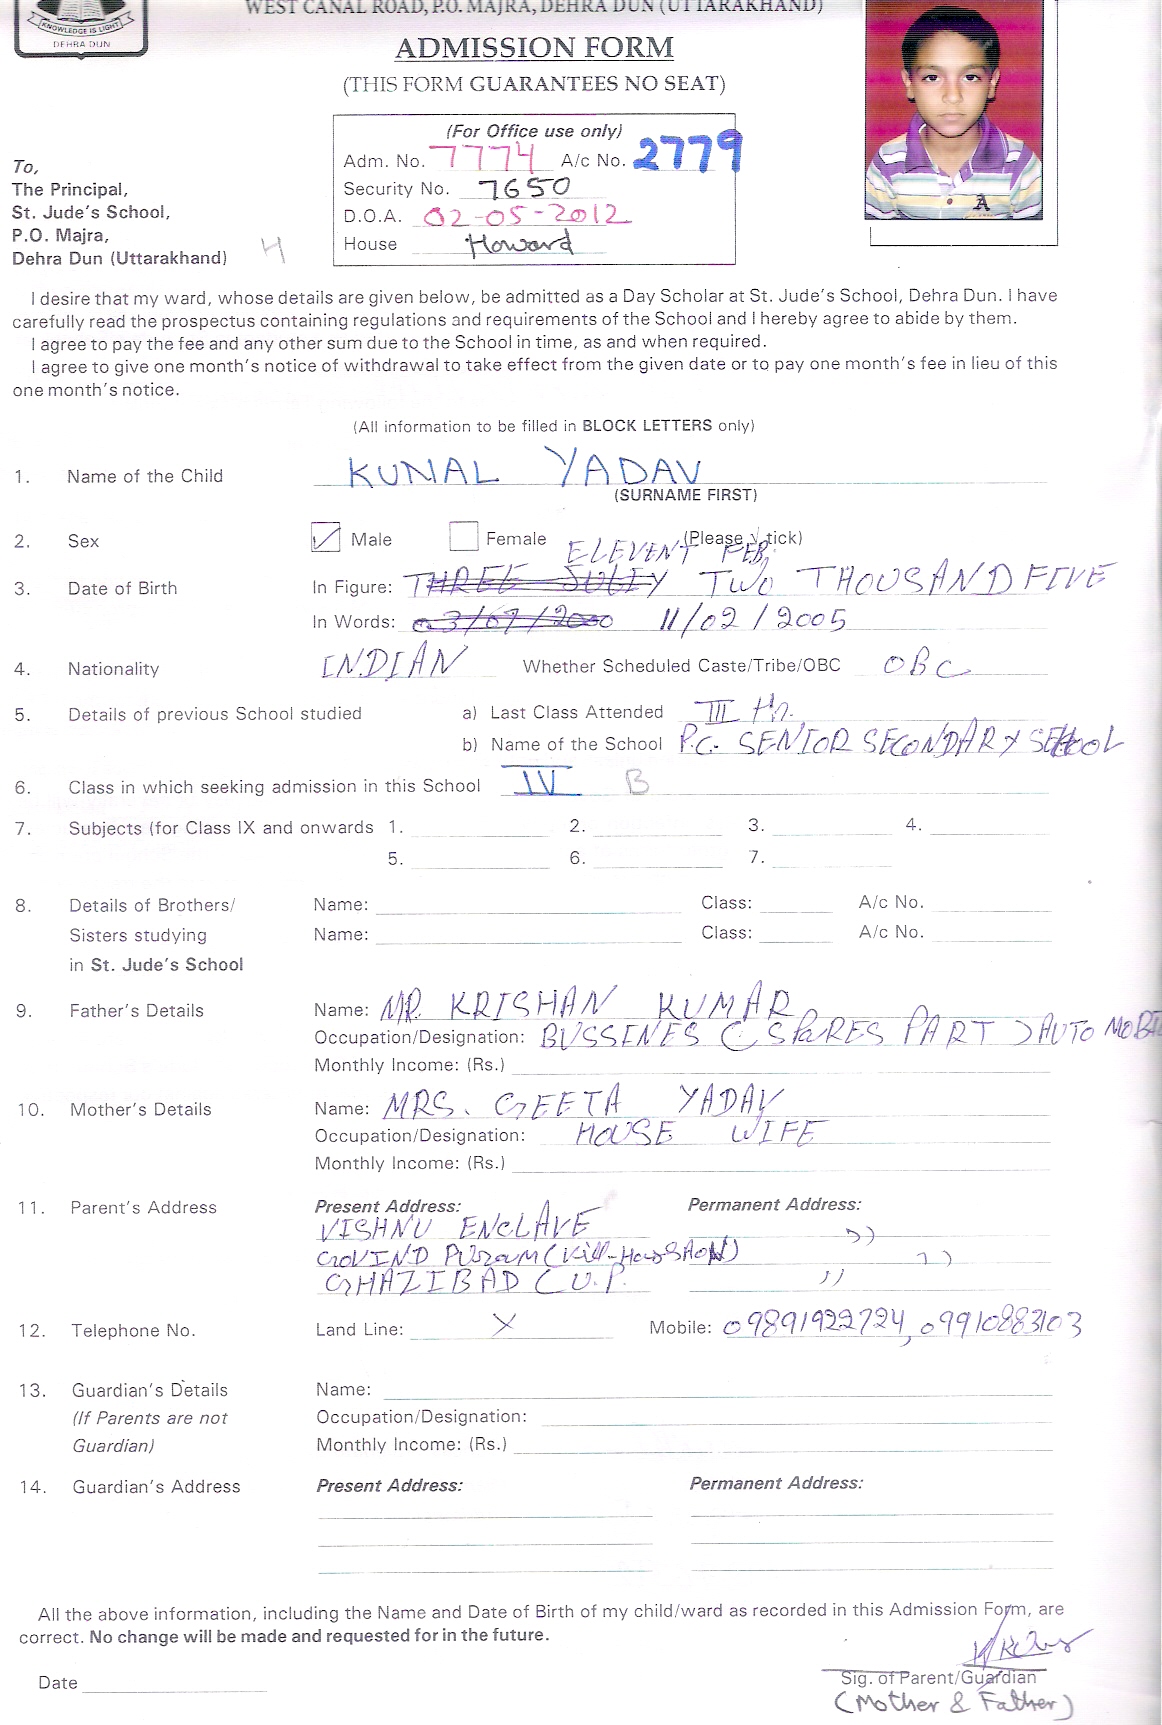 KNOWLEDGE IS LIGHT
DEHRA DUN
WEST CANAL ROAD, P.O. MAJRA, DEHRA DUN (UTTARAKHAND)
ADMISSION FORM
(THIS FORM GUARANTEES NO SEAT)
(For Office use only)
Adm. No. 7774 A/c No. 2779
Security No. 7650
D.O.A. 02-05-2012
House Howard
To,
The Principal,
St. Jude's School,
P.O. Majra,
Dehra Dun (Uttarakhand) H
I desire that my ward, whose details are given below, be admitted as a Day Scholar at St. Jude's School, Dehra Dun. I have
carefully read the prospectus containing regulations and requirements of the School and I hereby agree to abide by them.
I agree to pay the fee and any other sum due to the School in time, as and when required.
I agree to give one month's notice of withdrawal to take effect from the given date or to pay one month's fee in lieu of this
one month's notice.
(All information to be filled in BLOCK LETTERS only)
1. Name of the Child KUNAL YADAV
(SURNAME FIRST)
2. Sex Male Female (Please √ tick)
ELEVENT FEB.
3. Date of Birth In Figure: THREE JULEY TWO THOUSAND FIVE
In Words: 03/07/2000 11/02/2005
4. Nationality INDIAN Whether Scheduled Caste/Tribe/OBC OBC
5. Details of previous School studied a) Last Class Attended III
b) Name of the School P.C. SENIOR SECONDARY SCHOOL
6. Class in which seeking admission in this School IV B
7. Subjects (for Class IX and onwards 1. 2. 3. 4.
5. 6. 7.
8. Details of Brothers/ Name: Class: A/c No.
Sisters studying Name: Class: A/c No.
in St. Jude's School
9. Father's Details Name: MR. KRISHAN KUMAR
Occupation/Designation: BUSSENES (SPARES PART) AUTO MOBI
Monthly Income: (Rs.)
10. Mother's Details Name: MRS. GEETA YADAV
Occupation/Designation: HOUSE WIFE
Monthly Income: (Rs.)
11. Parent's Address Present Address: Permanent Address:
VISHNU ENCLAVE ))
GOVIND PURAM ))
GHAZIBAD (U.P. //
12. Telephone No. Land Line: X Mobile: 09891922724, 09910883103
13. Guardian's Details Name:
(If Parents are not Occupation/Designation:
Guardian) Monthly Income: (Rs.)
14. Guardian's Address Present Address: Permanent Address:
All the above information, including the Name and Date of Birth of my child/ward as recorded in this Admission Form, are
correct. No change will be made and requested for in the future.
Date Sig. of Parent/Guardian
(Mother & Father)